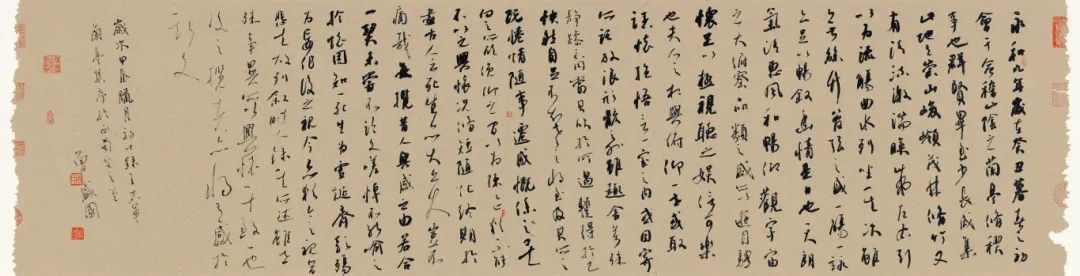 永和九年歲在癸丑暮春之初
會于會稽山陰之蘭亭脩稧
事也群賢畢至少長咸集
此地有崇山峻嶺茂林脩竹又
有清流激湍暎帶左右引
以為流觴曲水列坐其次雖
無絲竹管弦之盛一觴一詠
亦足以暢敘幽情是日也天朗
氣清惠風和暢仰觀宇宙
之大俯察品類之盛所以遊目騁
懷足以極視聽之娛信可樂
也夫人之相與俯仰一世或取
諸懷抱悟言一室之內或因寄
所託放浪形骸之外雖趣舍萬殊
靜躁不同當其欣於所遇暫得於己
快然自足不知老之將至及其所之
既惓情隨事遷感慨係之矣
向之所欣俛仰之間以為陳迹猶不能
不以之興懷況脩短隨化終期於
盡古人云死生亦大矣豈不
痛哉每攬昔人興感之由若合
一契未嘗不臨文嗟悼不能喻之
於懷固知一死生為虛誕齊彭殤
為妄作後之視今亦猶今之視昔
悲夫故列敘時人錄其所述雖世
殊事異所以興懷其致一也
後之攬者亦將有感於
斯文
歲次甲辰臘月初十錄王
蘭亭集序於
國